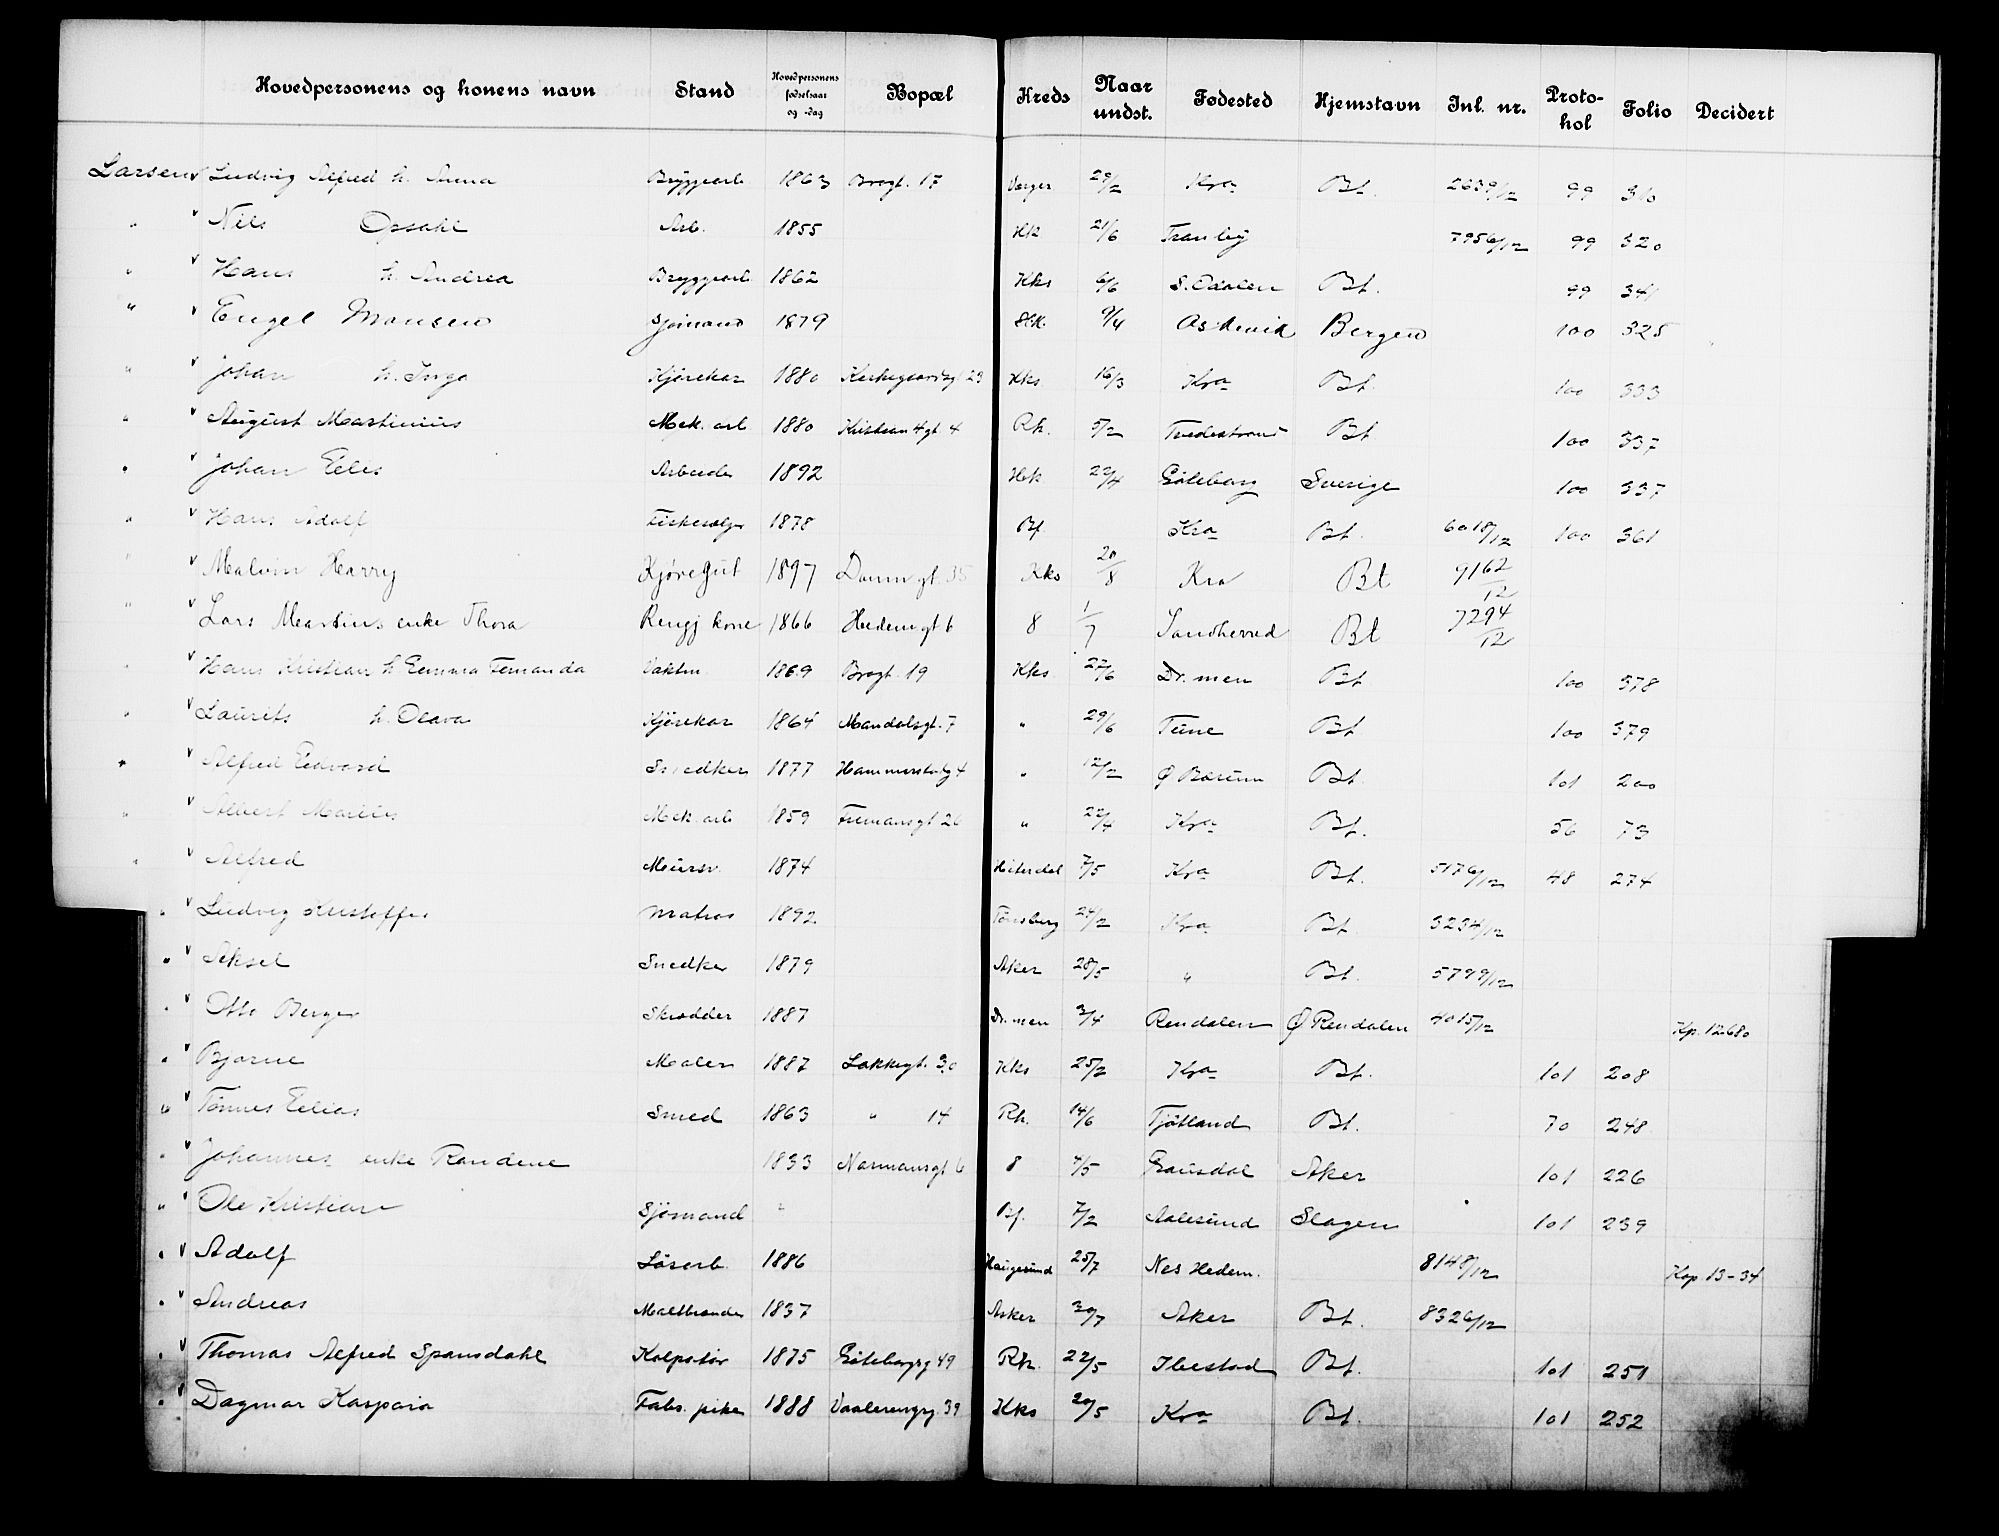 Hovedpersonens og konens navn Stand Hovedpersonens fødselsaar og -dag Bopæl Kreds Naar undst. Fødested Hjemstavn Inl. nr. Protokol Folio Decidert
Larsen v Ludvig Alfred h. Anna Bryggearb 1863 Brogt. 17 29/2 Kra Bt. 2639/12 99 310
" v Nils Opsahl Arb. 1855 Hk 21/6 Tranby 7956/12 99 320
" v Hans h. Andrea Bryggearb 1862 Kks 6/6 S. Odalen Bt. 99 341
" v Engel Monsen Sjømand 1879 Hk. 9/4 Askevik Bergen 100 325
" v Johan h. Inga Kjørekar 1880 Kirkegaardsgt 23 Kks 16/3 Kra Bt. 100 333
" v August Martinius Mek. arb 1880 Kristian 4 gt 4 Rk. 5/2 Tvedestrand Bt 100 337
" v Johan Elis Arbeider 1892 Hk 22/4 Gøteborg Sverige 100 337
" v Hans Adolf Fiskesælger 1878 Bf Kra Bt. 6018/12 100 361
" v Malvin Harry Kjøregut 1897 Danm gt. 35 Kks 20/8 Kra Bt 9162/12
" v Lars Martins enke Thora Rengj kone 1866 Hedemgt 6 8 1/7 Sandherred Bt 7294/12
" v Hans Kristian h. Emma Fernanda Vaktm. 1869 Brogt. 19 Kks 27/6 Dr.men Bt 100 378
" v Laurits h. Olava Kjørekar 1864 Mandalsgt. 7 " 29/6 Tune Bt 100 379
" v Alfred Edvard Snedker 1877 4 " 12/2 Ø Bærum Bt. 101 200
" v Albert Marius Mek. arb 1859 26 " 22/4 Kra Bt. 56 73
" v Alfred Mursv. 1874 Hiterdal 7/5 Kra Bt. 5176/12 48 274
" v Ludvig Kristoffer Matros 1892 Tønsberg 24/2 Kra Bt. 3234/12
" v Aksel Snedker 1879 Aker 28/5 " Bt. 5799/12
" v Otto Berger Skrædder 1887 Dr.men 3/4 Rendalen Ø Rendalen 4015/12 Kp. 12680
" v Bjarne Maler 1887 Lakkegt. 30 Kks 25/2 Kra Bt. 101 208
" v Tønnes Elias Smed 1863 " 14 Rk. 14/6 Tjøtland Bt. 70 248
" v Johannes enke Randene 1833 Normansgt 6 8 4/5 Gausdal Aker 101 226
" v Ole Kristian Sjømand " Bf. 7/2 Aalesund Slagen 101 239
" v Adolf Løsarb. 1886 Haugesund 25/7 Nes Hedem. 8148/12 Kop. 13-34
" v Andreas 1837 Asker 30/7 Aker Bt. 8326/12
" v Thomas Alfred Spansdahl Kolportør 1875 Gøteborgg 49 Rk. 22/5 Ibestad Bt. 101 251
" v Dagmar Kaspara Fabr. pike 1888 Vaalerengg. 39 Kks 20/5 Kra Bt. 101 252